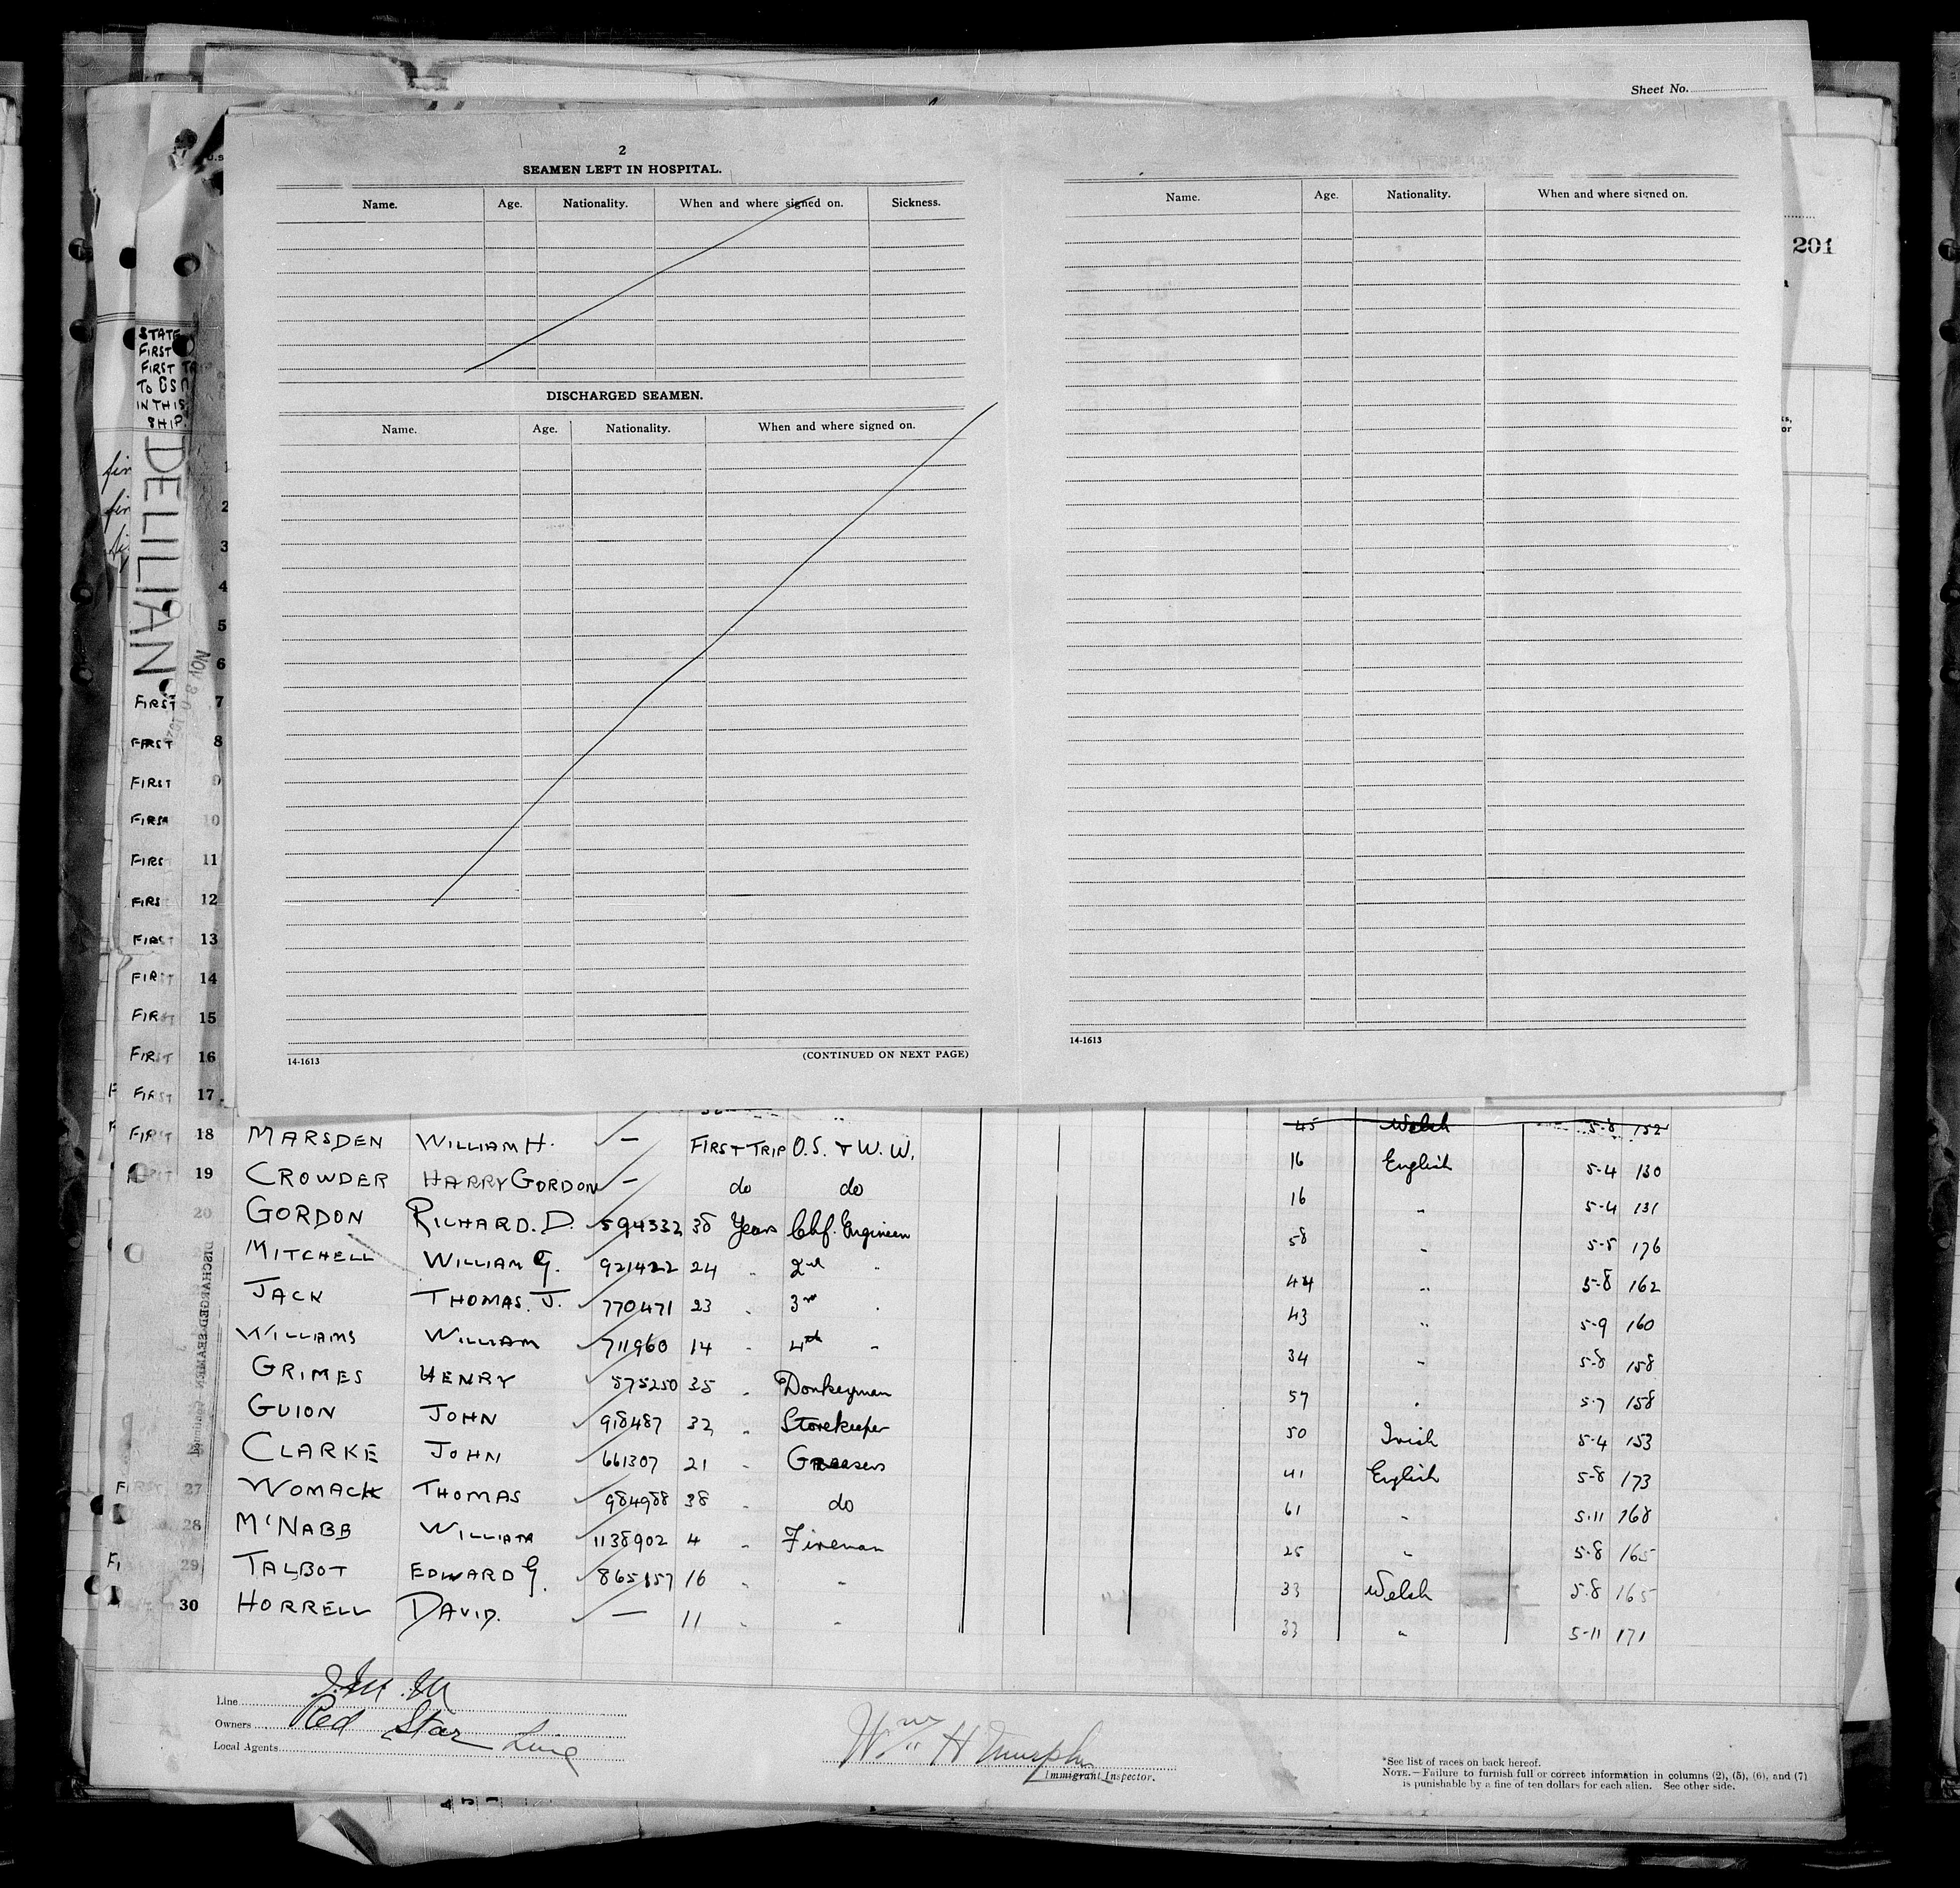 Sheet No.
2
SEAMEN LEFT IN HOSPITAL.
Name. Age. Nationality. When and where signed on. Sickness.
DISCHARGED SEAMEN.
Name. Age. Nationality. When and where signed on.
14-1613 (CONTINUED ON NEXT PAGE)
Name. Age. Nationality. When and where signed on.
14-1613
201
STATE
FIRST
FIRST TR
TO USA
IN THIS
SHIP.
DELILIAN
1
2
3
4
5
6
FIRST 7
FIRST 8
FIRST 9
FIRST 10
FIRST 11
FIRST 12
FIRST 13
FIRST 14
FIRST 15
FIRST 16
FIRST 17
45 Welsh 5-8 152
FIRST 18 MARSDEN WILLIAM H. — FIRST TRIP O.S. & W.W. 16 English 5-4 130
19 CROWDER HARRY GORDON — do do 16 " 5-4 131
20 GORDON RICHARD. D. 594332 38 Years Chf. Engineer 58 " 5-5 176
MITCHELL WILLIAM G. 921422 24 " 2nd " 44 " 5-8 162
JACK THOMAS. J. 770471 23 " 3rd " 43 " 5-9 160
WILLIAMS WILLIAM 711960 14 " 4th " 34 " 5-8 158
GRIMES HENRY 575250 35 " Donkeyman 57 " 5-7 158
GUION JOHN 918487 32 " Storekeeper 50 Irish 5-4 153
CLARKE JOHN 661307 21 " Greasers 41 English 5-8 173
FIRST 27 WOMACK THOMAS 984988 38 " do 61 " 5-11 168
28 M'NABB WILLIAM 1138902 4 " Fireman 25 " 5-8 165
29 TALBOT EDWARD G. 865157 16 " " 33 Welsh 5-8 165
30 HORRELL DAVID. — 11 " " 33 " 5-11 171
DISCHARGED SEAMEN
Line I.M.M
Owners Red Star Line
Local Agents
Wm H Murphy
Immigrant Inspector.
*See list of races on back hereof.
NOTE.—Failure to furnish full or correct information in columns (2), (5), (6), and (7)
is punishable by a fine of ten dollars for each alien. See other side.